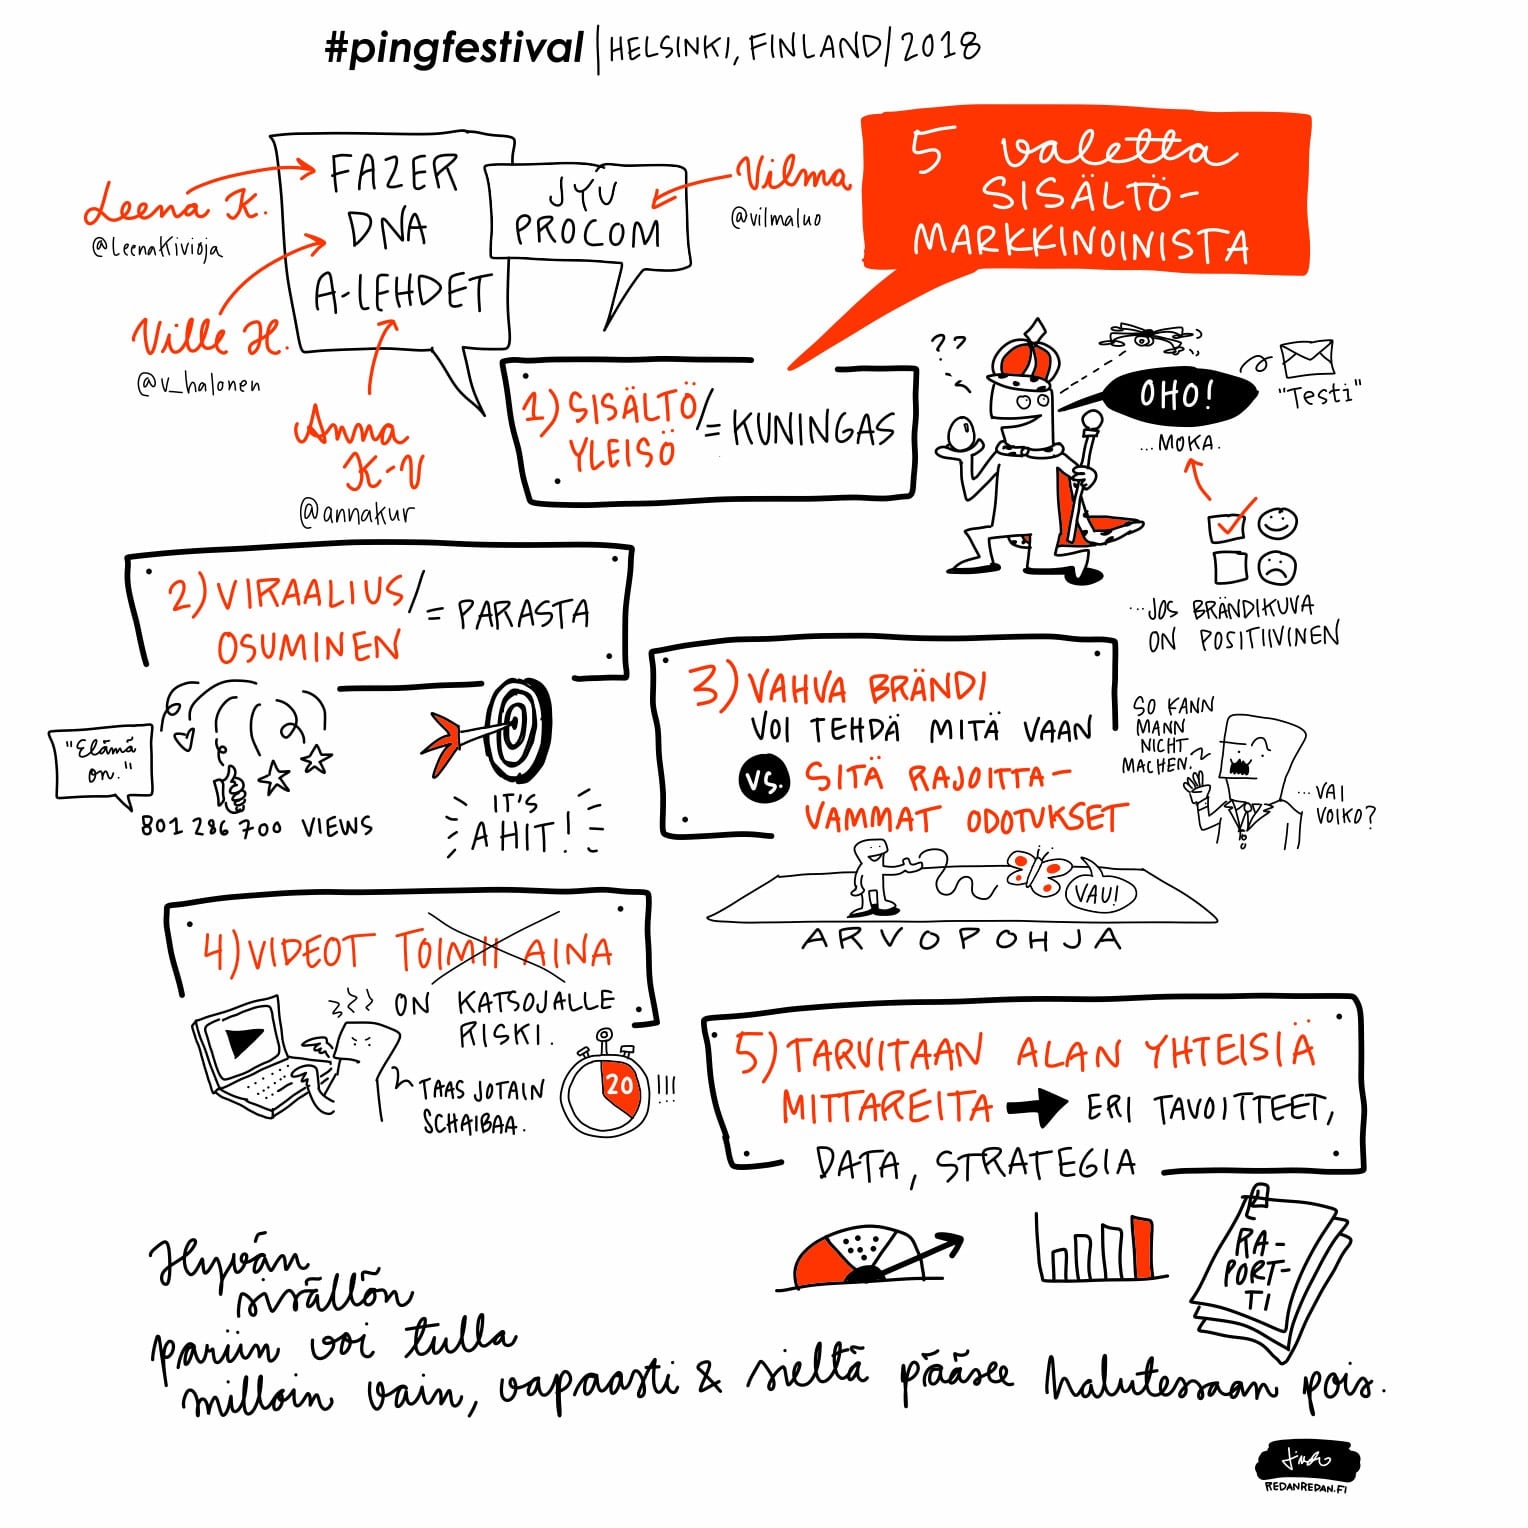 #pingfestival | HELSINKI, FINLAND / 2018
5 valetta
SISÄLTÖ-
MARKKINOINISTA
FAZER
DNA
A-LEHDET
JYU
PROCOM
Leena K.
@LeenaKivioja
Ville H.
@v_halonen
Anna
K-V
@annakur
Vilma
@vilmaluo
1) SISÄLTÖ/
YLEISÖ = KUNINGAS
??
OHO!
"Testi"
...MOKA.
...JOS BRÄNDIKUVA
ON POSITIIVINEN
2) VIRAALIUS/
OSUMINEN = PARASTA
"Elämä
on."
801 286 700 VIEWS
IT'S
A HIT!
3) VAHVA BRÄNDI
VOI TEHDÄ MITÄ VAAN
VS. SITÄ RAJOITTA-
VAMMAT ODOTUKSET
SO KANN
MANN
NICHT
MACHEN.
...VAI
VOIKO?
VAU!
ARVOPOHJA
4) VIDEOT TOIMII AINA
ON KATSOJALLE
RISKI.
TAAS JOTAIN
SCHAIBAA.
20 !!!
5) TARVITAAN ALAN YHTEISIÄ
MITTAREITA → ERI TAVOITTEET,
DATA, STRATEGIA
RA-
PORT-
TI
Hyvän
sisällön
pariin voi tulla
milloin vain, vapaasti & sieltä pääsee halutessaan pois.
REDANREDAN.FI